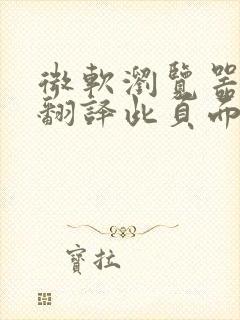 微軟瀏覽器
翻譯此頁面
寶拉